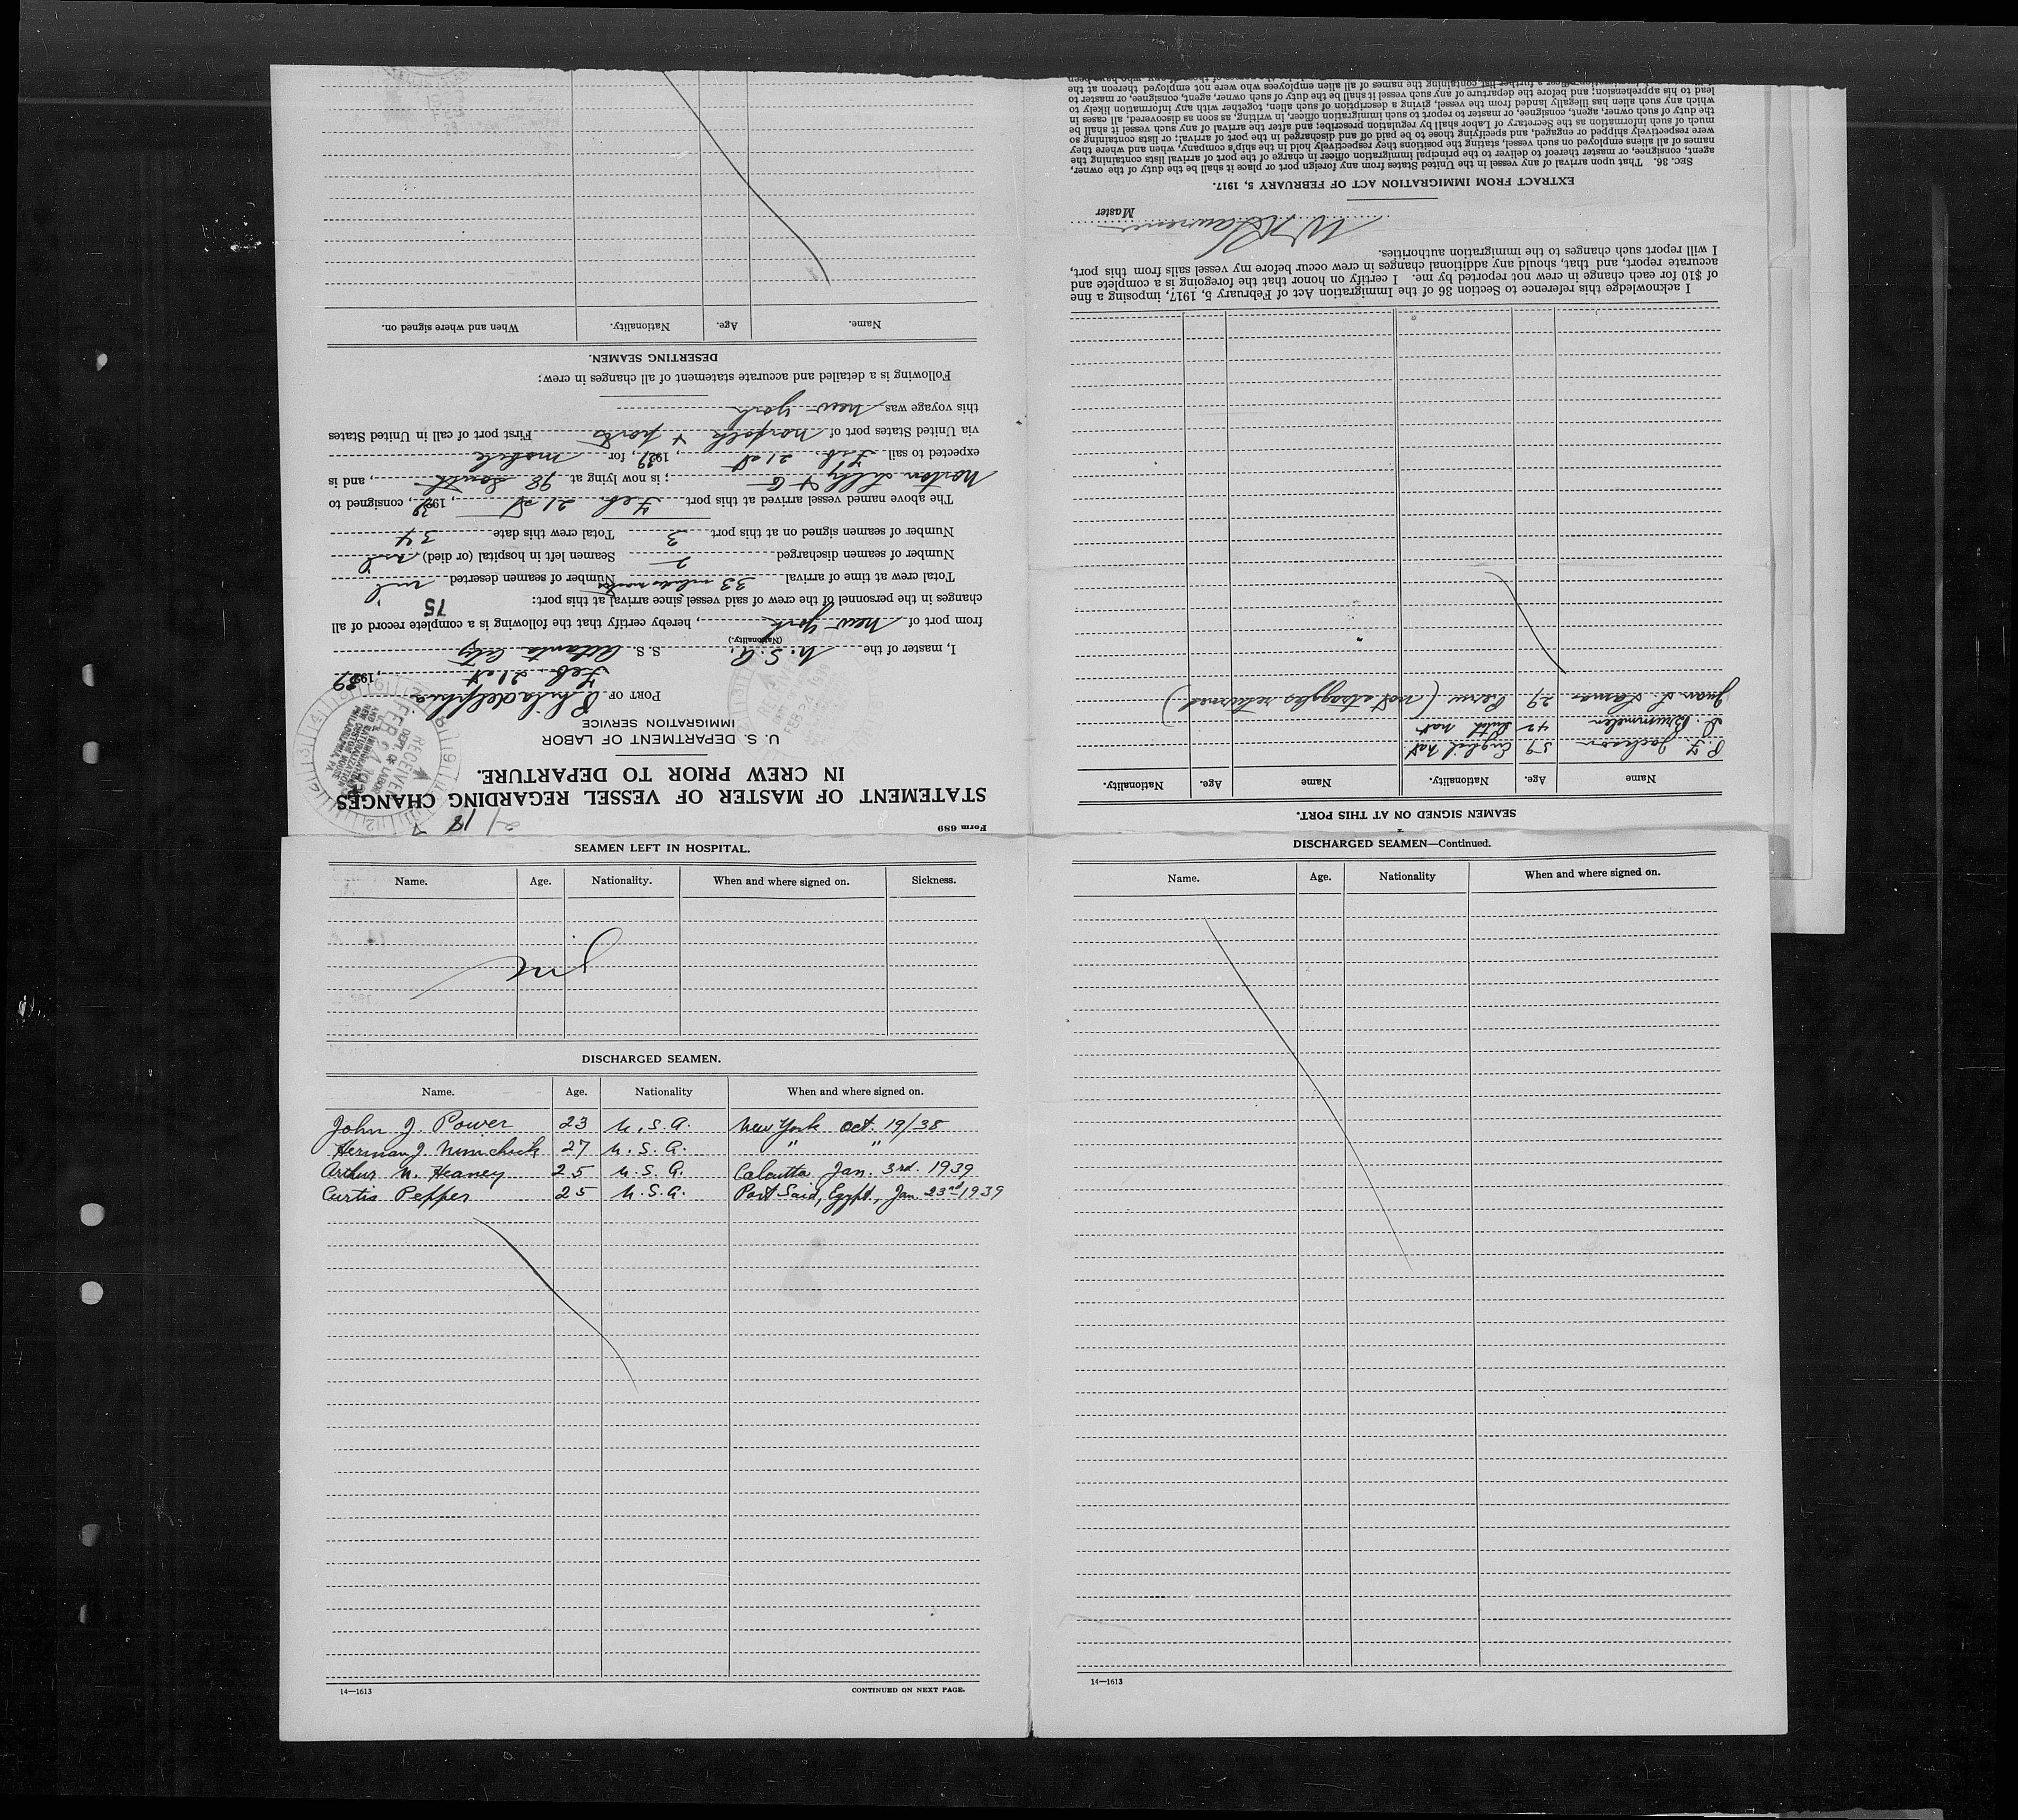 Form 689
21 18 7
STATEMENT OF MASTER OF VESSEL REGARDING CHANGES
IN CREW PRIOR TO DEPARTURE.
U. S. DEPARTMENT OF LABOR
IMMIGRATION SERVICE
PORT OF Philadelphia
Feb. 21st, 1939
I, master of the U.S.A. S. S. Atlanta City
(Nationality.)
from port of New York, hereby certify that the following is a complete record of all
changes in the personnel of the crew of said vessel since arrival at this port:
75
Total crew at time of arrival 33 includes master Number of seamen deserted nil
Number of seamen discharged 2 Seamen left in hospital (or died) nil
Number of seamen signed on at this port 3 Total crew this date 34
The above named vessel arrived at this port Feb. 21st, 1939, consigned to
Norton Lilly & Co; is now lying at 98 South, and is
expected to sail Feb 21st, 1939, for Mobile
via United States port of Norfolk & ports First port of call in United States
this voyage was New York
Following is a detailed and accurate statement of all changes in crew:
DESERTING SEAMEN.
Name. Age. Nationality. When and where signed on.
RECEIVED
DEPT. OF LABOR
FEB 21 1939
SEAMEN SIGNED ON AT THIS PORT.
Name Age. Nationality. Name Age. Nationality.
P. F. Jackson 59 English nat.
D. Brummelen 42 Dutch nat
Juan L. Lamas 29 Peru (
returned)
I acknowledge this reference to Section 36 of the Immigration Act of February 5, 1917, imposing a fine
of $10 for each change in crew not reported by me. I certify on honor that the foregoing is a complete and
accurate report, and that, should any additional changes in crew occur before my vessel sails from this port,
I will report such changes to the immigration authorities.
Master
EXTRACT FROM IMMIGRATION ACT OF FEBRUARY 5, 1917.
SEC. 36. That upon arrival of any vessel in the United States from any foreign port or place it shall be the duty of the owner,
agent, consignee, or master thereof to deliver to the principal immigration officer in charge of the port of arrival lists containing the
names of all aliens employed on such vessel, stating the positions they respectively hold in the ship's company, when and where they
were respectively shipped or engaged, and specifying those to be paid off and discharged in the port of arrival; or lists containing so
much of such information as the Secretary of Labor shall by regulation prescribe; and after the arrival of any such vessel it shall be
the duty of such owner, agent, consignee, or master to report to such immigration officer, in writing, as soon as discovered, all cases in
which any such alien has illegally landed from the vessel, giving a description of such alien, together with any information likely to
lead to his apprehension; and before the departure of any such vessel it shall be the duty of such owner, agent, consignee, or master to
deliver to such immigration officer a further list containing the names of all alien employees who were not employed thereon at the
SEAMEN LEFT IN HOSPITAL.
Name. Age. Nationality. When and where signed on. Sickness.
nil
DISCHARGED SEAMEN.
Name. Age. Nationality When and where signed on.
John J. Power 23 U.S.A. New York Oct. 19/38
Herman J. Nimchick 27 U.S.A. " "
Arthur N. Heaney 25 U.S.A. Calcutta Jan. 3rd. 1939
Curtis Pepper 25 U.S.A. Port Said, Egypt., Jan. 23rd 1939
14—1613 CONTINUED ON NEXT PAGE.
DISCHARGED SEAMEN—Continued.
Name. Age. Nationality When and where signed on.
14—1613